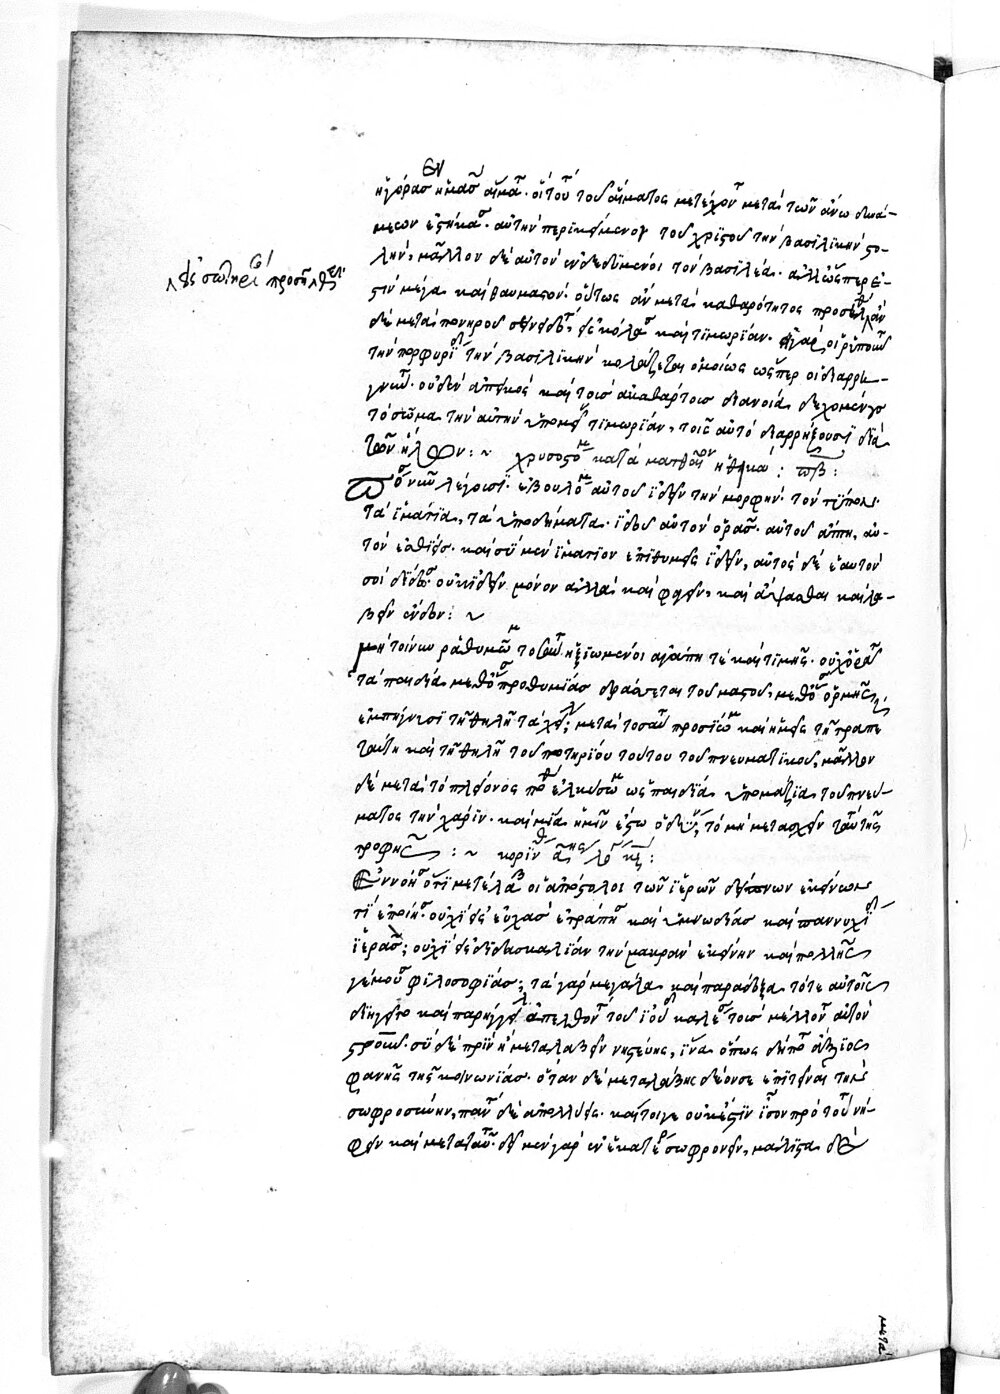 ἠγόρασεν ἡμᾶς αἷμα. οἱ τούτου τοῦ αἵματος μετέχοντες μετὰ τῶν ἄνω δυνά-
μεων ἑστήκασι. αὐτὴν περικείμενοι τοῦ χριστοῦ τὴν βασιλικὴν στο-
λήν, μᾶλλον δὲ αὐτὸν ἐνδεδυμένοι τὸν βασιλέα. ἀλλ' ὥσπερ ἐ-
στὶν μέγα καὶ θαυμαστόν. οὕτως ἂν μετὰ καθαρότητος προσέλθῃς
εἰς σωτηρίαν προσῆλθες
δὲ μετὰ πονηροῦ συνειδότος εἰς κόλασιν καὶ τιμωρίαν. εἰ γὰρ οἱ ῥυποῦντες
τὴν πορφυρίδα τὴν βασιλικὴν κολάζεται ὁμοίως ὥσπερ οἱ διαρρη-
γνύντες. οὐδὲν ἀπεικὸς καὶ τοὺς ἀκαθάρτῳ διανοίᾳ δεχομένους
τὸ σῶμα τὴν αὐτὴν ὑπομένειν τιμωρίαν, τοῖς αὐτὸ διαρρήξουσι διὰ
τῶν ἥλων : ~ χρυσοστόμου κατὰ ματθαῖον ἠθικῶ : πβ :
Πόσοι νῦν λέγουσι. ἐβουλόμην αὐτοῦ ἰδεῖν τὴν μορφὴν. τὸν τύπον.
τὰ ἱμάτια, τὰ ὑποδήματα. ἰδοὺ αὐτὸν ὁρᾶς. αὐτοῦ ἅπτῃ, αὐ-
τὸν ἐσθίεις. καὶ σὺ μὲν ἱμάτιον ἐπιθυμεῖς ἰδεῖν, αὐτὸς δὲ ἑαυτόν
σοι δίδωσι οὐκ ἰδεῖν μόνον ἀλλὰ καὶ φαγεῖν, καὶ ἅψασθαι καὶ λα-
βεῖν ἔνδον : ~
μὴ τοίνυν ῥαθυμῶμεν τοσαύτης ἠξιωμένοι ἀγάπης τὲ καὶ τιμῆς. οὐχ ὁρᾶτε
τὰ παιδία μεθ' ὅσης προθυμίας δράσσεται τοῦ μαστοῦ, μεθ' ὅσης ὁρμῆς
ἐμπήγνυσι τῇ θηλῇ τὰ χείλη; μετὰ τοσαύτης προσίωμεν καὶ ἡμεῖς τῇ τραπέζῃ
ταύτῃ καὶ τῇ θηλῇ τοῦ ποτηρίου τούτου τοῦ πνευματικοῦ, μᾶλλον
δὲ μετὰ τὸ πλείονος πόθου ἑλκύσωμεν ὡς παιδία ὑπομάζια τοῦ πνεύ-
ματος τὴν χάριν. καὶ μία ἡμῖν ἔστω ὀδύνη, τὸ μὴ μετασχεῖν ταύτης
τροφῆς : ~ κορινθ αης λο κζ :
Ἐννόησον ὅτι μετέλαβον οἱ ἀπόστολοι τῶν ἱερῶν δείπνων ἐκείνων
τί ἐποίησαν. οὐχὶ εἰς εὐχὰς ἐτράπησαν καὶ ὑμνωδίας καὶ παννυχίδας
ἱεράς; οὐχὶ εἰς διδασκαλίαν τὴν μακρὰν ἐκείνην καὶ πολλῆς
γέμουσαν φιλοσοφίας; τὰ γὰρ μεγάλα καὶ παράδοξα τότε αὐτοῖς
διηγεῖτο καὶ παρήγγειλεν ἀπελθόντος τοῦ ἰούδα καλέσαι τοὺς μέλλοντας αὐτὸν
σταυροῦν. σὺ δὲ πρὶν ἢ μεταλαβεῖν νηστεύεις, ἵνα ὅπως δήποτε ἄξιος
φανῇς τῆς κοινωνίας. ὅταν δὲ μεταλάβῃς δέον σε ἐπιτεῖναι τὴν
σωφροσύνην, πάντα δὲ ἀπολλύεις. καίτοιγε οὐκ ἔστιν ἴσον πρὸ τοῦ νή-
φειν καὶ μετὰ ταῦτα. δεῖ μὲν γὰρ ἐν ἑκατέρῳ σωφρονεῖν, μάλιστα δὲ